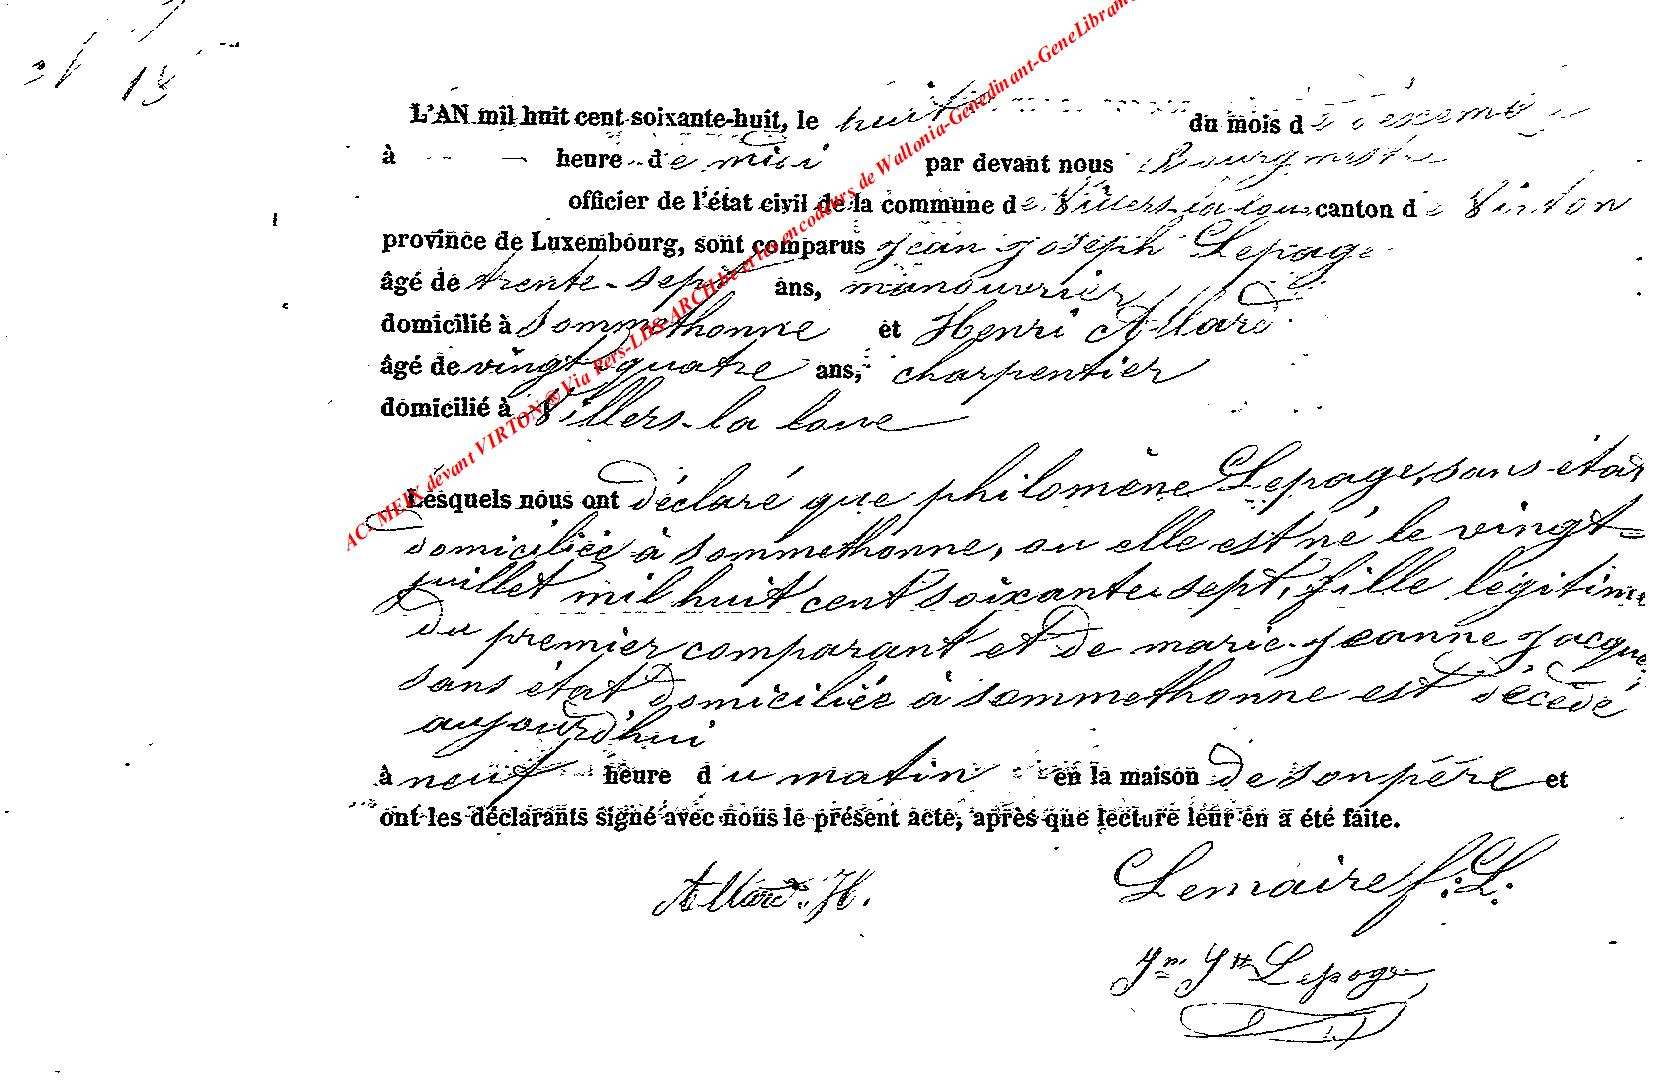 18
L'AN mil huit cent soixante-huit, le huit du mois de décembre
à heure de midi par devant nous Bourgmestre
officier de l'état civil de la commune de Villers-la-loue canton de Virton
province de Luxembourg, sont comparus Jean Joseph Lepage
âgé de trente-sept ans, manouvrier
domicilié à Sommethonne et Henri Allard
âgé de vingt quatre ans, charpentier
domicilié à Villers-la loue
Lesquels nous ont déclaré que philomène Lepage, sans état
domiciliée à Sommethonne, ou elle est né le vingt-
juillet mil huit cent soixante sept, fille légitime
du premier comparant et de marie-Jeanne Jacques
sans état domiciliée à Sommethonne est décédé
aujourd'hui
à neuf heure du matin en la maison de son père et
ont les déclarants signé avec nous le présent acte, après que lecture leur en a été faite.
Allard. H. Lemaire f. L.
Jn Jh Lepage
AC. MEIX devant VIRTON Via Pers-LDS-ARCH.be et les encodeurs de Wallonia-Genedinant-GeneLibram